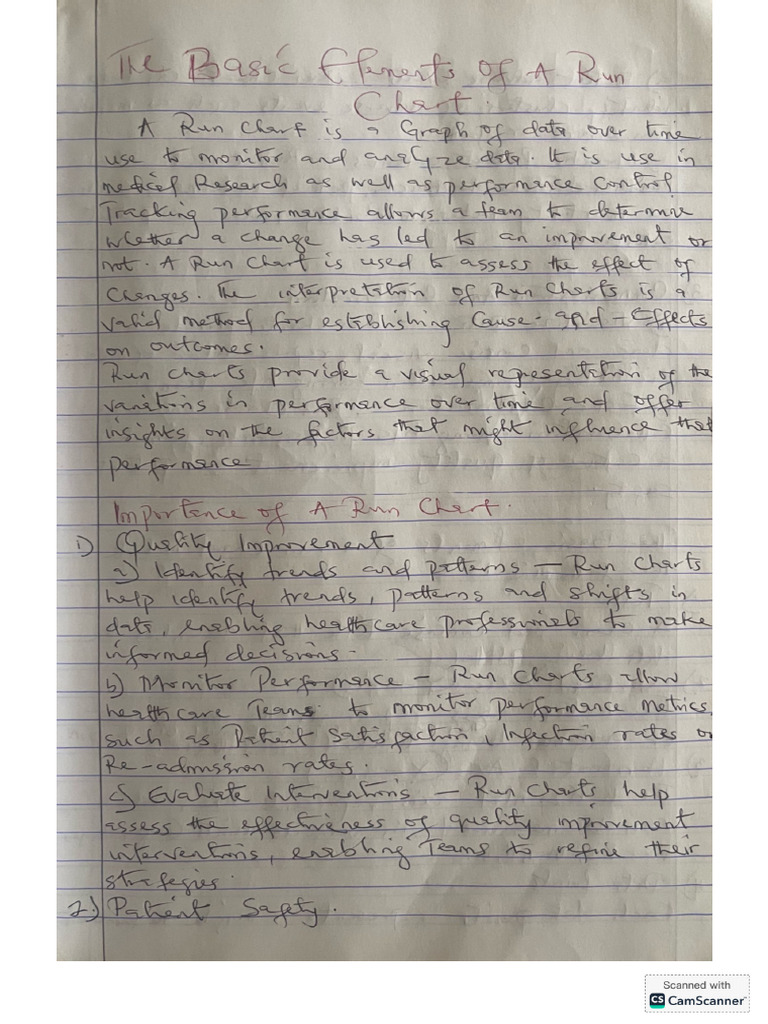 The Basic Elements of A Run
Chart.
A Run Chart is a Graph of data over time
use to monitor and analyze data. It is use in
medical Research as well as performance control
Tracking performance allows a team to determine
whether a change has led to an improvement or
not. A Run Chart is used to assess the effect of
Changes. The interpretation of Run Charts is a
valid method for establishing Cause-and-Effects
on outcomes.
Run charts provide a visual representation of the
variations in performance over time and offer
insights on the factors that might influence that
performance
Importance of A Run Chart.
1) Quality Improvement
a) Identify trends and patterns — Run Charts
help identify trends, patterns and shifts in
data, enabling healthcare professionals to make
informed decisions.
b) Monitor Performance - Run Charts allow
healthcare Teams to monitor performance metrics
such as Patient Satisfaction, Infection rates or
Re-admission rates.
c) Evaluate Interventions — Run Charts help
assess the effectiveness of quality improvement
interventions, enabling Teams to refine their
strategies.
2) Patient Safety.
Scanned with
CS CamScanner